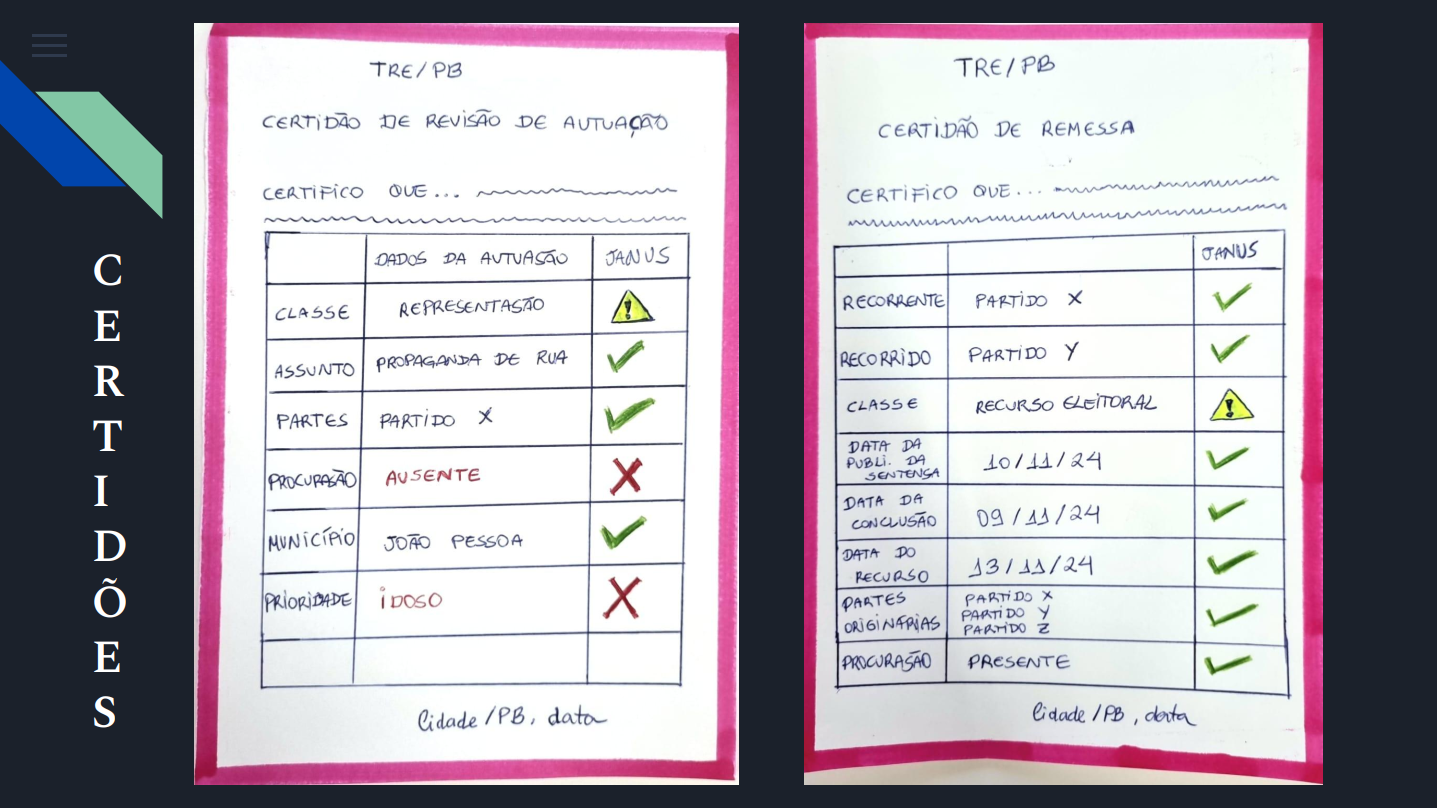 CERTIDÕES
TRE/PB
CERTIDÃO DE REVISÃO DE AUTUAÇÃO
CERTIFICO QUE...
DADOS DA AUTUAÇÃO JANUS
CLASSE REPRESENTAÇÃO
ASSUNTO PROPAGANDA DE RUA
PARTES PARTIDO X
PROCURAÇÃO AUSENTE
MUNICÍPIO JOÃO PESSOA
PRIORIDADE IDOSO
Cidade/PB, data
TRE/PB
CERTIDÃO DE REMESSA
CERTIFICO QUE...
JANUS
RECORRENTE PARTIDO X
RECORRIDO PARTIDO Y
CLASSE RECURSO ELEITORAL
DATA DA
PUBLI. DA
SENTENÇA
10/11/24
DATA DA
CONCLUSÃO
09/11/24
DATA DO
RECURSO
13/11/24
PARTES
ORIGINÁRIAS
PARTIDO X
PARTIDO Y
PARTIDO Z
PROCURAÇÃO PRESENTE
Cidade/PB, data